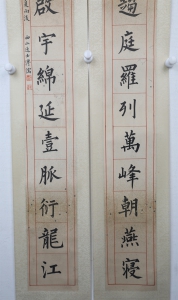 庭羅列萬峰朝燕寢
啟宇綿延壹脈衍龍江